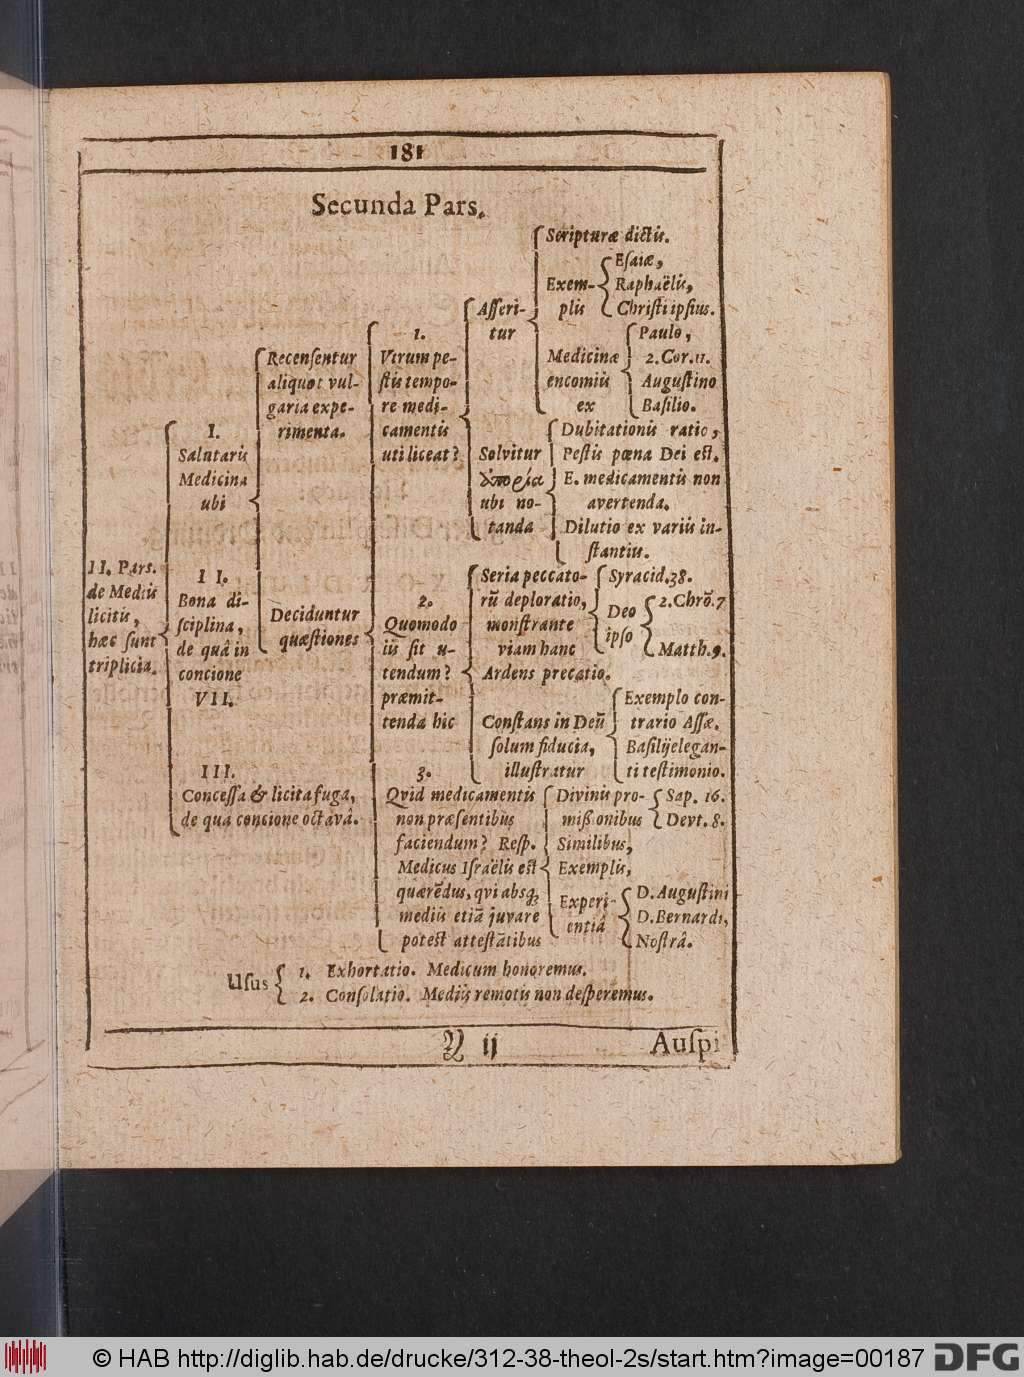 181
Secunda Pars.
II. Pars.
de Mediis
licitis,
hæc sunt
triplicia.
I.
Salutaris
Medicina
ubi
Recensentur
aliquot vul-
garia expe-
rimenta.
Deciduntur
quæstiones
1.
Vtrum pe-
stis tempo-
re medi-
camentis
uti liceat?
Asseri-
tur
Scripturæ dictis.
Exem-
plis
Esaiæ,
Raphaëlis,
Christi ipsius.
Medicinæ
encomiis
ex
Paulo,
2. Cor. 11.
Augustino
Basilio.
Solvitur
ἀπορία
ubi no-
tanda
Dubitationis ratio,
Pestis pœna Dei est.
E. medicamentis non
avertenda.
Dilutio ex variis in-
stantiis.
2.
Quomodo
iis sit u-
tendum?
præmit-
tenda hic
Seria peccato-
rū deploratio,
monstrante
viam hanc
Syracid. 38.
Deo
ipso
2. Chrō. 7
Matth. 9.
Ardens precatio.
Constans in Deū
solum fiducia,
illustratur
Exemplo con-
trario Assæ.
Basilij elegan-
ti testimonio.
3.
Qvid medicamentis
non præsentibus
faciendum? Resp.
Medicus Israëlis est
quærēdus, qvi absq;
mediis etiā juvare
potest attestātibus
Divinis pro-
missionibus
Sap. 16.
Devt. 8.
Similibus,
Exemplis,
Experi-
entiâ
D. Augustini
D. Bernardi,
Nostrâ.
II.
Bona di-
sciplina,
de quâ in
concione
VII.
III.
Concessa & licita fuga,
de quâ concione octavâ.
Usus
1. Exhortatio. Medicum honoremus.
2. Consolatio. Mediis remotis non desperemus.
Y ij
Auspi
© HAB http://diglib.hab.de/drucke/312-38-theol-2s/start.htm?image=00187
DFG